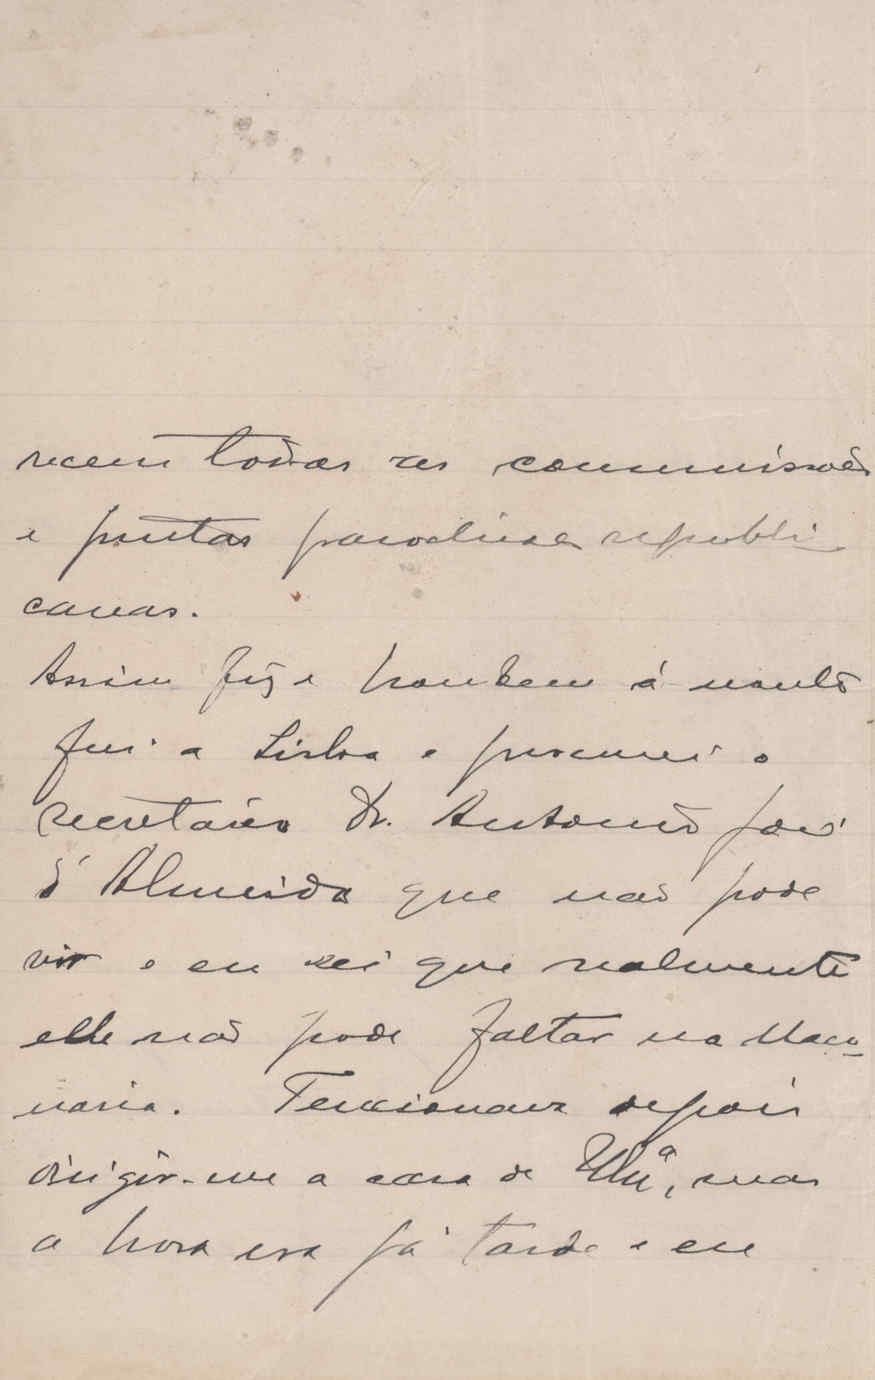 recem todas as commissões
e juntas parochiaes republi
canas.
Assim fiz e hontem á noute
fui a Lisboa e procurei o
secretario Dr. Antonio José
d'Almeida que não pode
vir e eu sei que realmente
elle não pode faltar na Maço
naria. Tencionava depois
dirigir-me a casa de V. Ex.ª, mas
a hora era já tarde e eu